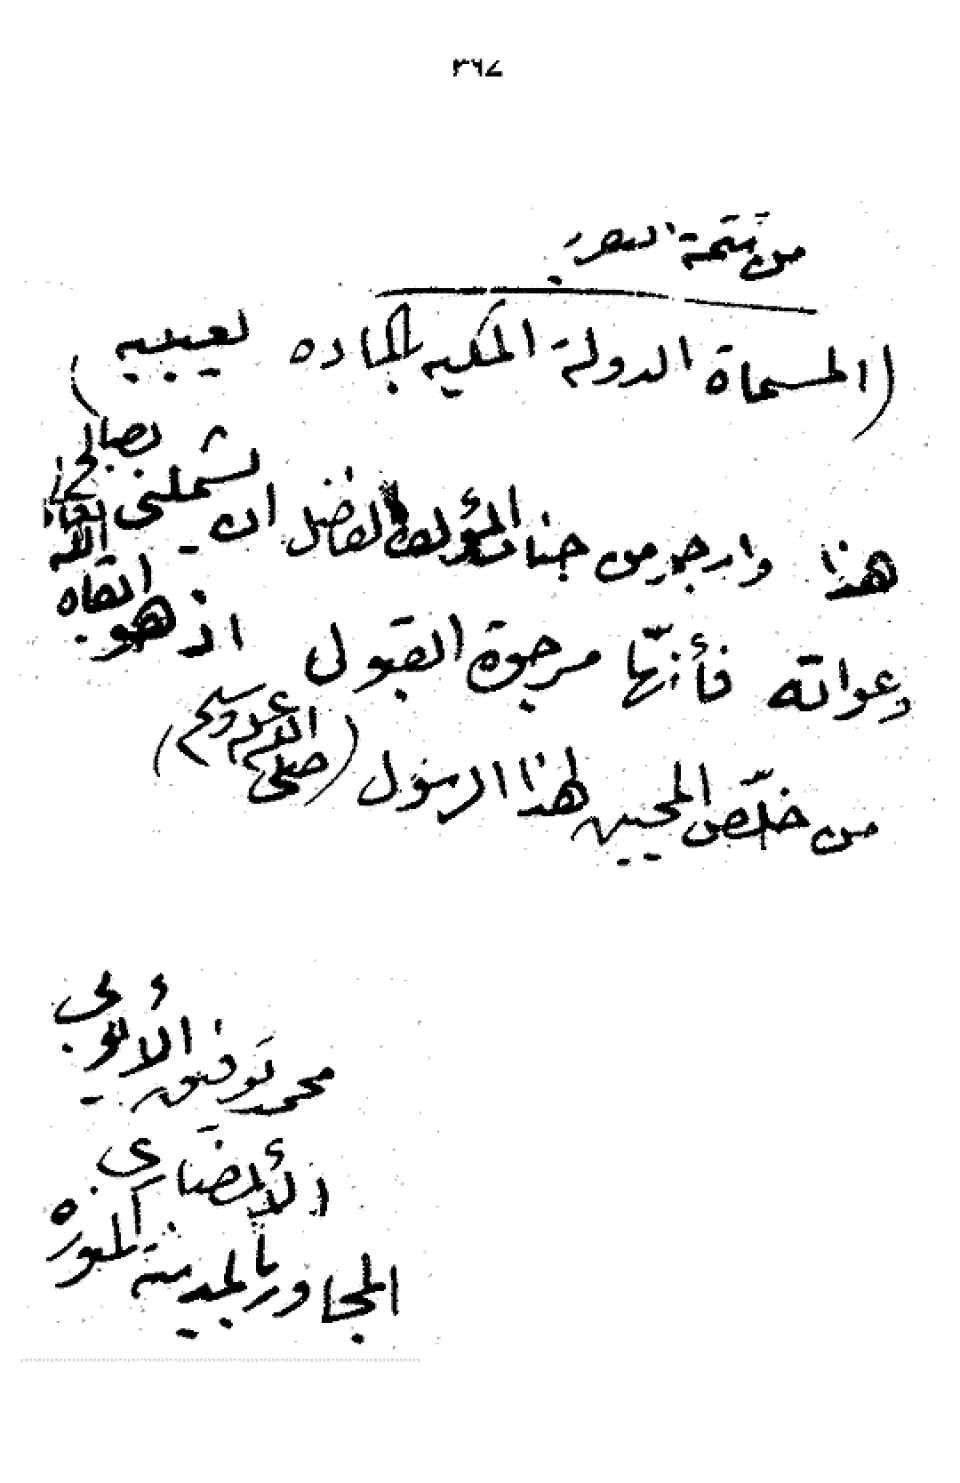 ٣٦٧
من تتمة
(المسماة الدولة المكيه بالماده لغيبيه)
هذا وارجو من جناب المؤلف الفاضل ان تشملني بصالح
دعواته فأنّها مرجوة القبول اذ هو
من خلّص المحبين لهذا الرسول (صلى الله عليه وسلم)
محمد توفيق الأيوبي
الأنصاري
المجاور بالمدينة المنوره